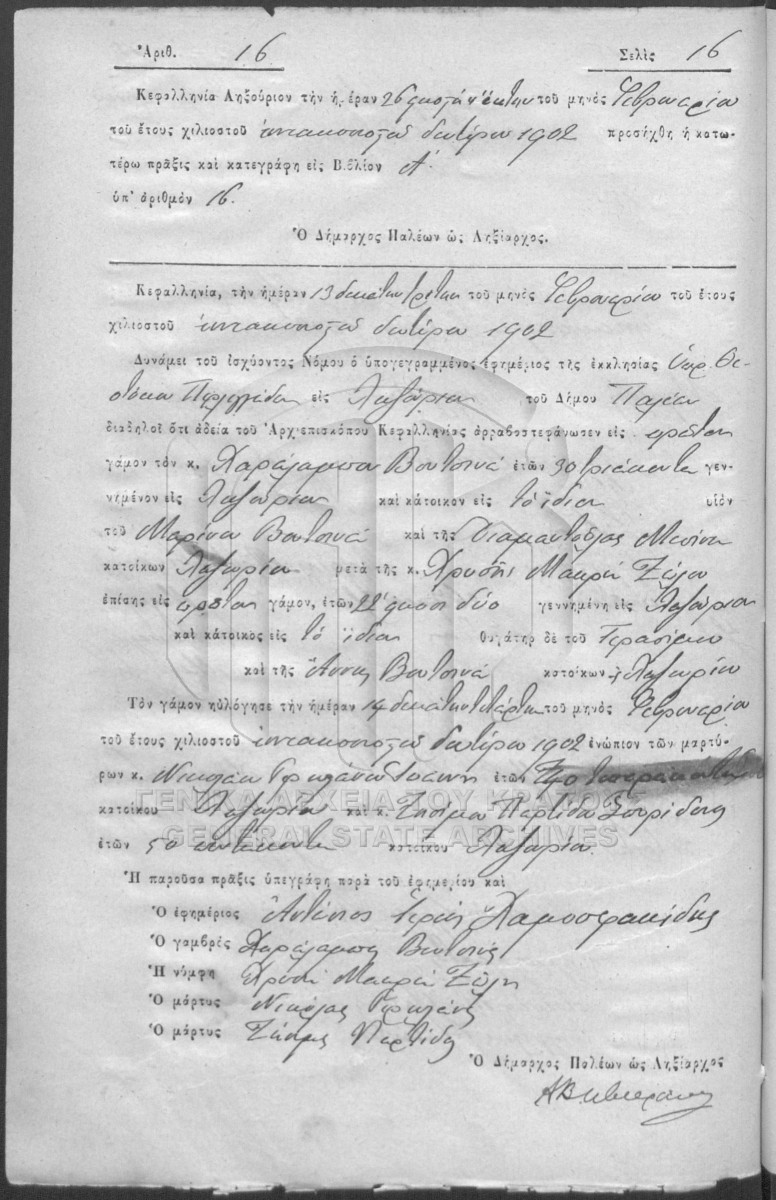 Ἀριθ. 16 Σελὶς 16
Κεφαλληνία Ληξούριον τὴν ἡμέραν 26 εἰκοστὴν ἕκτην τοῦ μηνὸς Φεβρουαρίου
τοῦ ἔτους χιλιοστοῦ ἐννεακοσιοστοῦ δευτέρου 1902 προσήχθη ἡ κατω-
τέρω πρᾶξις καὶ κατεγράφη εἰς Βιβλίον Α΄
ὑπ' ἀριθμὸν 16.
Ὁ Δήμαρχος Παλέων ὡς Ληξίαρχος.
Κεφαλληνία, τὴν ἡμέραν 13 δεκάτην τρίτην τοῦ μηνὸς Φεβρουαρίου τοῦ ἔτους
χιλιοστοῦ ἐννεακοσιοστοῦ δευτέρου 1902
Δυνάμει τοῦ ἰσχύοντος Νόμου ὁ ὑπογεγραμμένος ἐφημέριος τῆς ἐκκλησίας Ὑπερ. Θε-
οτόκου εἰς Ληξούριον τοῦ Δήμου Παλέων
διαδηλοῖ ὅτι ἀδείᾳ τοῦ Ἀρχιεπισκόπου Κεφαλληνίας ἀρραβοστεφάνωσεν εἰς πρῶτον
γάμον τὸν κ. Χαράλαμπον Βουτσινᾶ ἐτῶν 30 τριάκοντα γεν-
νημένον εἰς Ληξούριον καὶ κάτοικον εἰς τὸ ἴδιον υἱὸν
τοῦ Μαρίνου Βουτσινᾶ καὶ τῆς Διαμαντούλας
κατοίκων Ληξουρίου μετὰ τῆς κ. Χρυσῆς Μακρῆ
ἐπίσης εἰς πρῶτον γάμον, ἐτῶν 22 εἴκοσι δύο γεννημένη εἰς Ληξούριον
καὶ κάτοικος εἰς τὸ ἴδιον θυγάτηρ δὲ τοῦ Γερασίμου
καὶ τῆς Ἄννης Βουτσινᾶ κατοίκων Ληξουρίου
Τὸν γάμον ηὐλόγησε τὴν ἡμέραν 14 δεκάτην τετάρτην τοῦ μηνὸς Φεβρουαρίου
τοῦ ἔτους χιλιοστοῦ ἐννεακοσιοστοῦ δευτέρου 1902 ἐνώπιον τῶν μαρτύ-
ρων κ. Νικολάου Ἰωάννη ἐτῶν
κατοίκου Ληξουρίου καὶ κ. Ζησίμου Παρτίδου Σπυρίδωνος
ἐτῶν 50 πεντήκοντα κατοίκου Ληξουρίου.
ΓΕΝΙΚΑ ΑΡΧΕΙΑ ΤΟΥ ΚΡΑΤΟΥΣ
GENERAL STATE ARCHIVES
Ἡ παροῦσα πρᾶξις ὑπεγράφη παρὰ τοῦ ἐφημερίου καὶ
Ὁ ἐφημέριος Ἀντώνιος Ἱερεὺς
Ὁ γαμβρὸς Χαράλαμπος Βουτσινᾶς
Ἡ νύμφη Χρυσῆ Μακρῆ
Ὁ μάρτυς Νικόλαος
Ὁ μάρτυς Ζήσιμος Παρτίδης
Ὁ Δήμαρχος Παλέων ὡς Ληξίαρχος